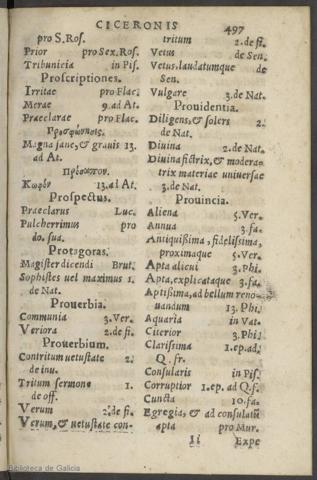 CICERONIS 497
pro S.Ros.
Prior pro Sex.Ros.
Tribunicia in Pis.
Proscriptiones.
Irritae pro Flac.
Merae 9.ad At.
Praeclarae pro Flac.
Προσφώνησις.
Magna sane,& grauis 13.
ad At.
Πρόσωπον.
Κωφὸν 13.ad At.
Prospectus.
Praeclarus Luc.
Pulcherrimus pro
do.sua.
Protagoras.
Magister dicendi Brut.
Sophistes uel maximus 1.
de Nat.
Prouerbia.
Communia 3.Ver.
Veriora 2.de fi.
Prouerbium.
Contritum uetustate 2.
de inu.
Tritum sermone 1.
de off.
Verum 2.de fi.
Verum,& uetustate con-
tritum 2.de fi.
Vetus de Sen.
Vetus,laudatumque de
Sen.
Vulgare 3.de Nat.
Prouidentia.
Diligens,& solers 2.
de Nat.
Diuina 2.de Nat.
Diuina fictrix,& modera-
trix materiae uniuersae
3.de Nat.
Prouincia.
Aliena 5.Ver.
Annua 3.fa.
Antiquißima,fidelißima,
proximaque 5.Ver.
Apta alicui 3.Phi.
Apta,explicataque 3.fa.
Aptißima,ad bellum reno-
uandum 13.Phi.
Aquaria in Vat.
Citerior 3.Phi.
Clarissima 1.ep.ad.
Q.fr.
Consularis in Pis.
Corruptior 1.ep.ad Q.f.
Cuncta 10.fa.
Egregia,& ad consulatū
apta pro Mur.
Ii Expe
Biblioteca de Galicia